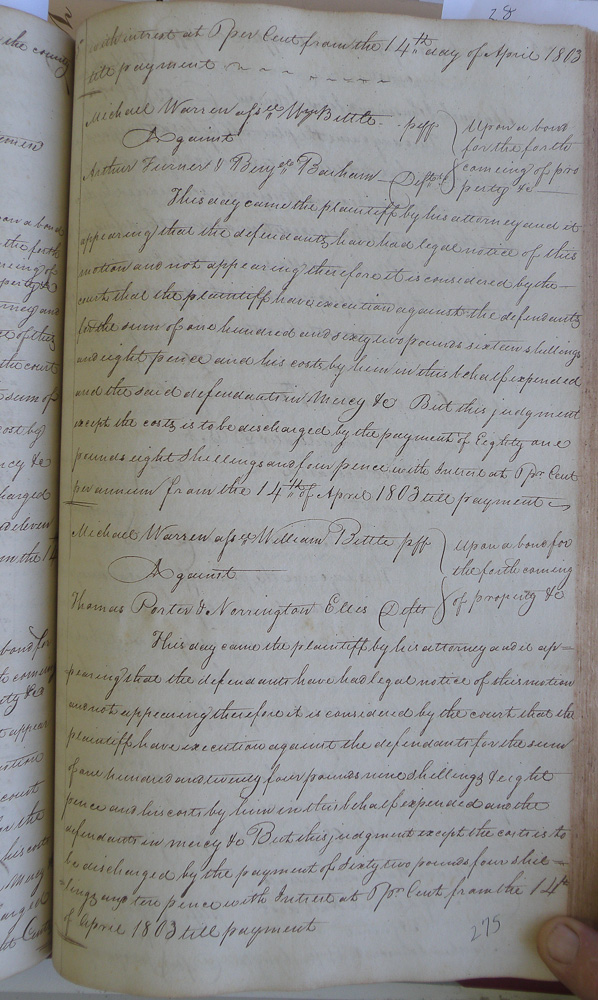 28
with interest at P per Cent from the 14th day of April 1803
till payment
Michael Warren assee Wm Bittle plff
Against
Arthur Turner & Benj Barham Defts
Upon a bond
for the forth
coming of pro
perty &c
This day came the plaintiff by his attorney and it
appearing that the defendants have had legal notice of this
motion and not appearing therefore it is considered by the
court that the plaintiff have execution against the defendants
for the sum of one hundred and sixty two pounds sixteen shillings
and eight pence and his costs by him in this behalf expended
and the said defendants in Mercy &c But this judgment
except the costs is to be discharged by the payment of Eighty one
pounds eight Shillings and four pence with Interest at Pr Cent
per annum from the 14th of April 1803 till payment
Michael Warren assee William Bittle plff
Against
Thomas Porter & Norrington Elles Defts
Upon a bond for
the forth coming
of property &c
This day came the plaintiff by his attorney and it ap=
=pearing that the defendants have had legal notice of this motion
and not appearing therefore it is considered by the court that the
plaintiff have execution against the defendants for the sum
of one hundred and twenty four pounds nine shillings & eight
pence and his costs by him in this behalf expended and the
defendants in mercy &c But this judgment except the costs is to
be discharged by the payment of Sixty two pounds four shil=
=lings and ten pence with Interest at Pr Cent from the 14th
of April 1803 till payment
275